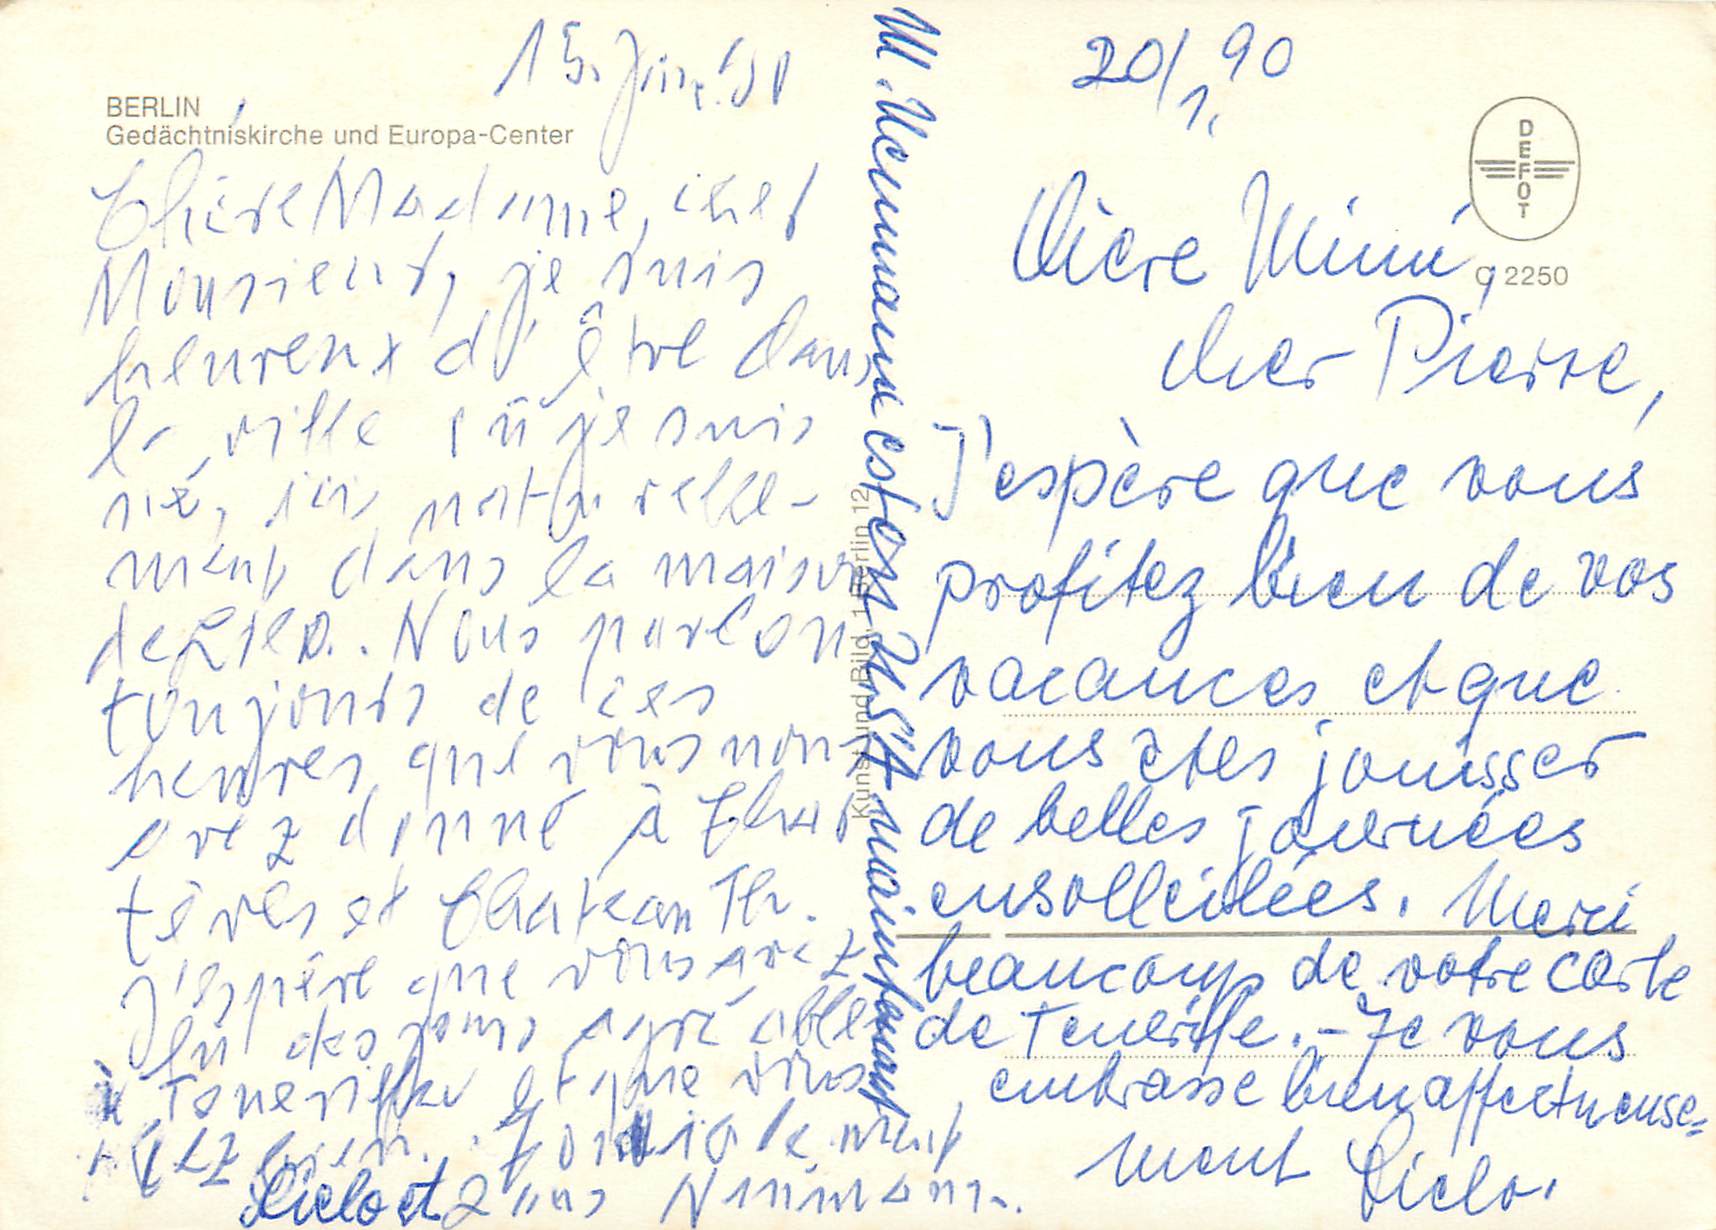 BERLIN
Gedächtniskirche und Europa-Center
15. '90
Chère Madame, cher
Monsieur, je suis
heureux d' être dans
la ville où je suis
né, ici naturelle-
ment dans la maison
de Lilo.. Nous parlons
toujours de ces
heures que vous nous
avez donné à Char
tèves et Chateau Th.
J'espère que vous avez
eu des jours agréables
à Teneriffa et que vous
allez bien. Cordialement
Lielo et Hans Neumann.
M. Neumann est en USA maintenant
Kunst und Bild, 1 Berlin 12
20/1. 90
DEFOT
C 2250
Chère Mimi,
cher Pierre,
J'espère que vous
profitez bien de vos
vacances et que
vous êtes jouisser
de belles journées
ensolleilées. Merci
beaucoup de votre carte
de Teneriffe. - Je vous
embrasse bien affectueuse=
ment Lielo.